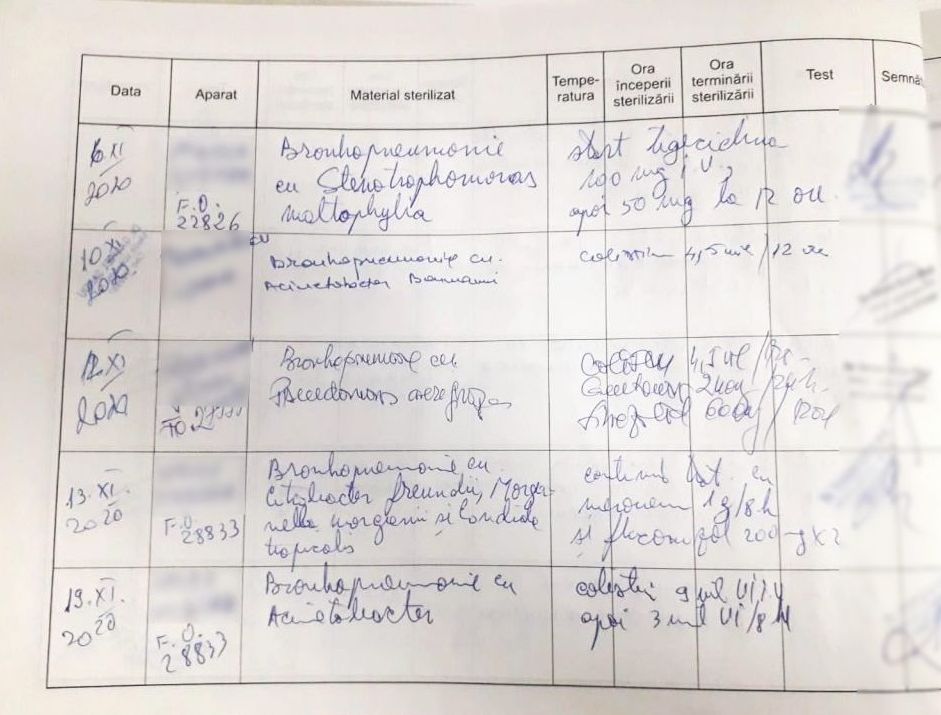 Data Aparat Material sterilizat Tempe- ratura Ora începerii sterilizării Ora terminării sterilizării Test Semnă
6.XI
2020
F.O.
22826
Bronhopneumonie
cu Stenotrophomonas
maltophylia
start tigeciclina
100 mg i.v.,
apoi 50 mg la 12 ore.
10.XI
2020.
cu
Bronhopneumonie cu
Acinetobacter Baumanii
colistin 4,5 mil/12 ore
12.XI
2020
Bronhopneumonie cu
Pseudomonas aeruginosa
4,5 mil
600
13.XI.
2020
F.O.
28833
Bronhopneumonie cu
Citrobacter freundii, Morga-
nella morganii si Candida
tropicalis
continuă cu
meronem 1g/8h
și fluconazol 200 mg x 2
19.XI.
2020
F.O.
28833
Bronhopneumonie cu
Acinetobacter
colistin 9 mil UI i.v
apoi 3 mil UI/8h